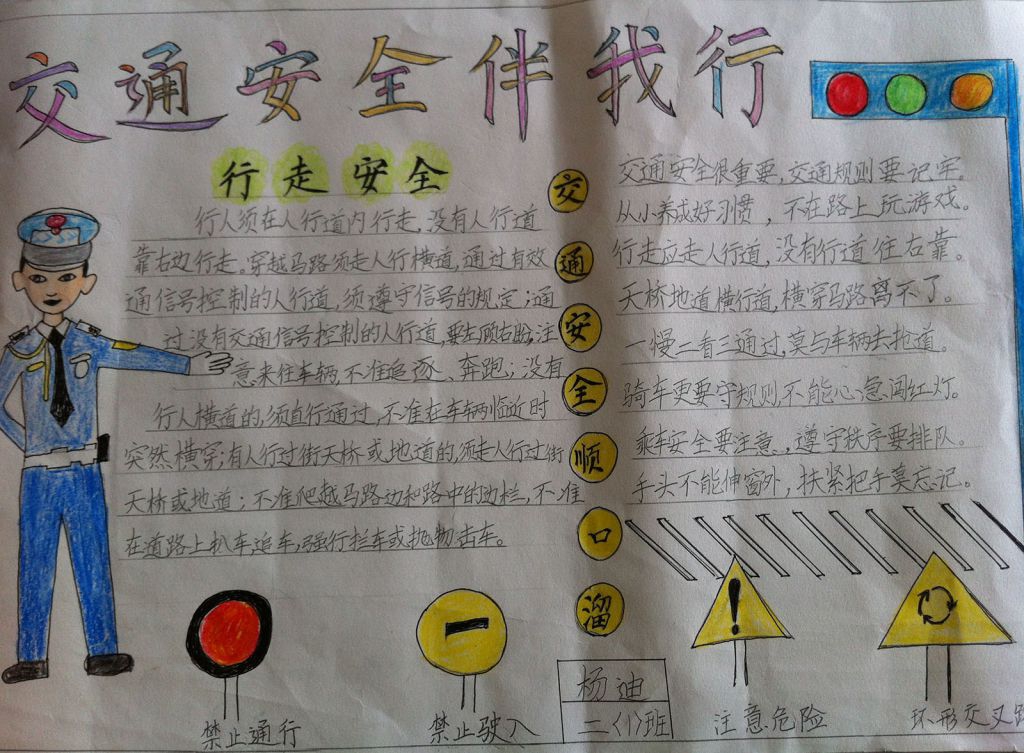 交通安全伴我行
行走安全
行人须在人行道内行走,没有人行道
靠右边行走。穿越马路须走人行横道,通过有效
通信号控制的人行道,须遵守信号的规定;通
过没有交通信号控制的人行道,要左顾右盼,注
意来往车辆,不准追逐、奔跑;没有
行人横道的,须直行通过,不准在车辆临近时
突然横穿;有人行过街天桥或地道的,须走人行过街
天桥或地道;不准爬越马路边和路中的边栏,不准
在道路上扒车、追车,强行拦车或抛物击车。
交通安全顺口溜
交通安全很重要,交通规则要记牢。
从小养成好习惯,不在路上玩游戏。
行走应走人行道,没有行道往右靠。
天桥地道横行道,横穿马路离不了。
一慢二看三通过,莫与车辆去抢道。
骑车更要守规则,不能心急闯红灯。
乘车安全要注意,遵守秩序要排队。
手头不能伸窗外,扶紧把手莫忘记。
禁止通行
禁止驶入
杨迪
二〈1〉班
注意危险
环形交叉路